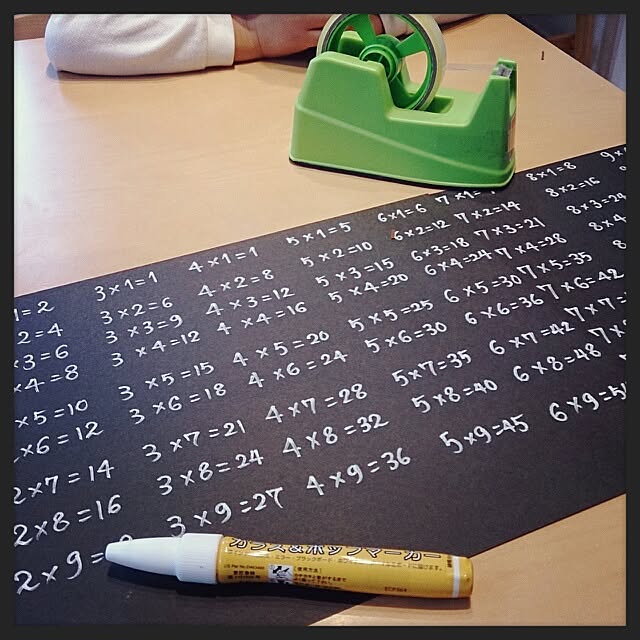 3×1=1 4×1=1 5×1=5 6×1=6 7×1= 8×1=8
2=4 3×2=6 4×2=8 5×2=10 6×2=12 7×2=14 8×2=16
×3=6 3×3=9 4×3=12 5×3=15 6×3=18 7×3=21 8×3=24
×4=8 3×4=12 4×4=16 5×4=20 6×4=24 7×4=28
×5=10 3×5=15 4×5=20 5×5=25 6×5=30 7×5=35
×6=12 3×6=18 4×6=24 5×6=30 6×6=36 7×6=42
2×7=14 3×7=21 4×7=28 5×7=35 6×7=42
2×8=16 3×8=24 4×8=32 5×8=40 6×8=48
2×9= 3×9=27 4×9=36 5×9=45 6×9=5
ガラス&ポップマーカー